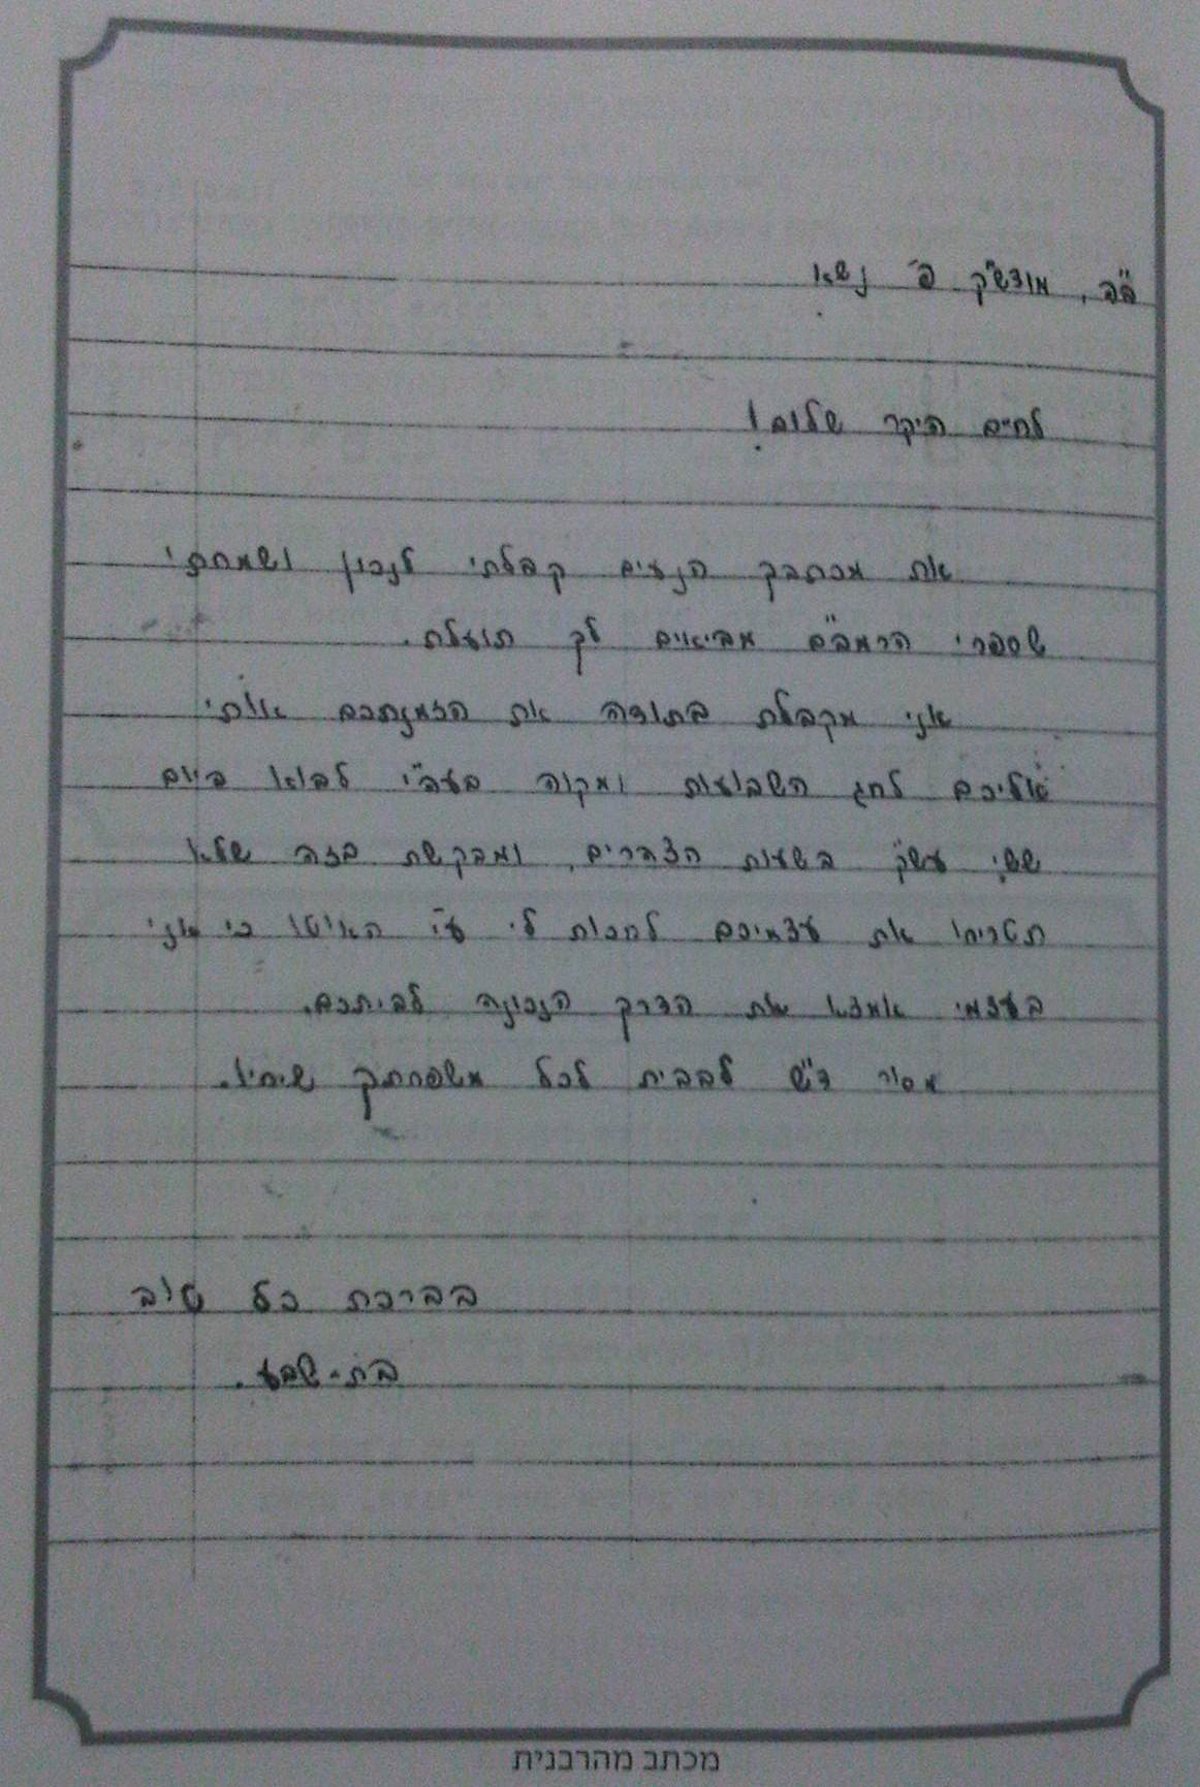 ב"ה, מוצש"ק פ' נשא
לחיים היקר שלום!
את מכתבך הנעים קבלתי לנכון ושמחתי
שספרי הרמב"ם מביאים לך תועלת.
אני מקבלת בתודה את הזמנתכם אותי
אליכם לחג השבועות ומקוה בעז"י לבוא ביום
ששי עש"ק בשעות הצהרים, ומבקשת בזה שלא
תטריחו את עצמיכם לחכות לי ע"י האוטו כי אני
בעצמי אמצא את הדרך הנכונה לביתכם.
מסור ד"ש לבבית לכל משפחתך שיחיו.
בברכת כל טוב
בת-שבע.
מכתב מהרבנית